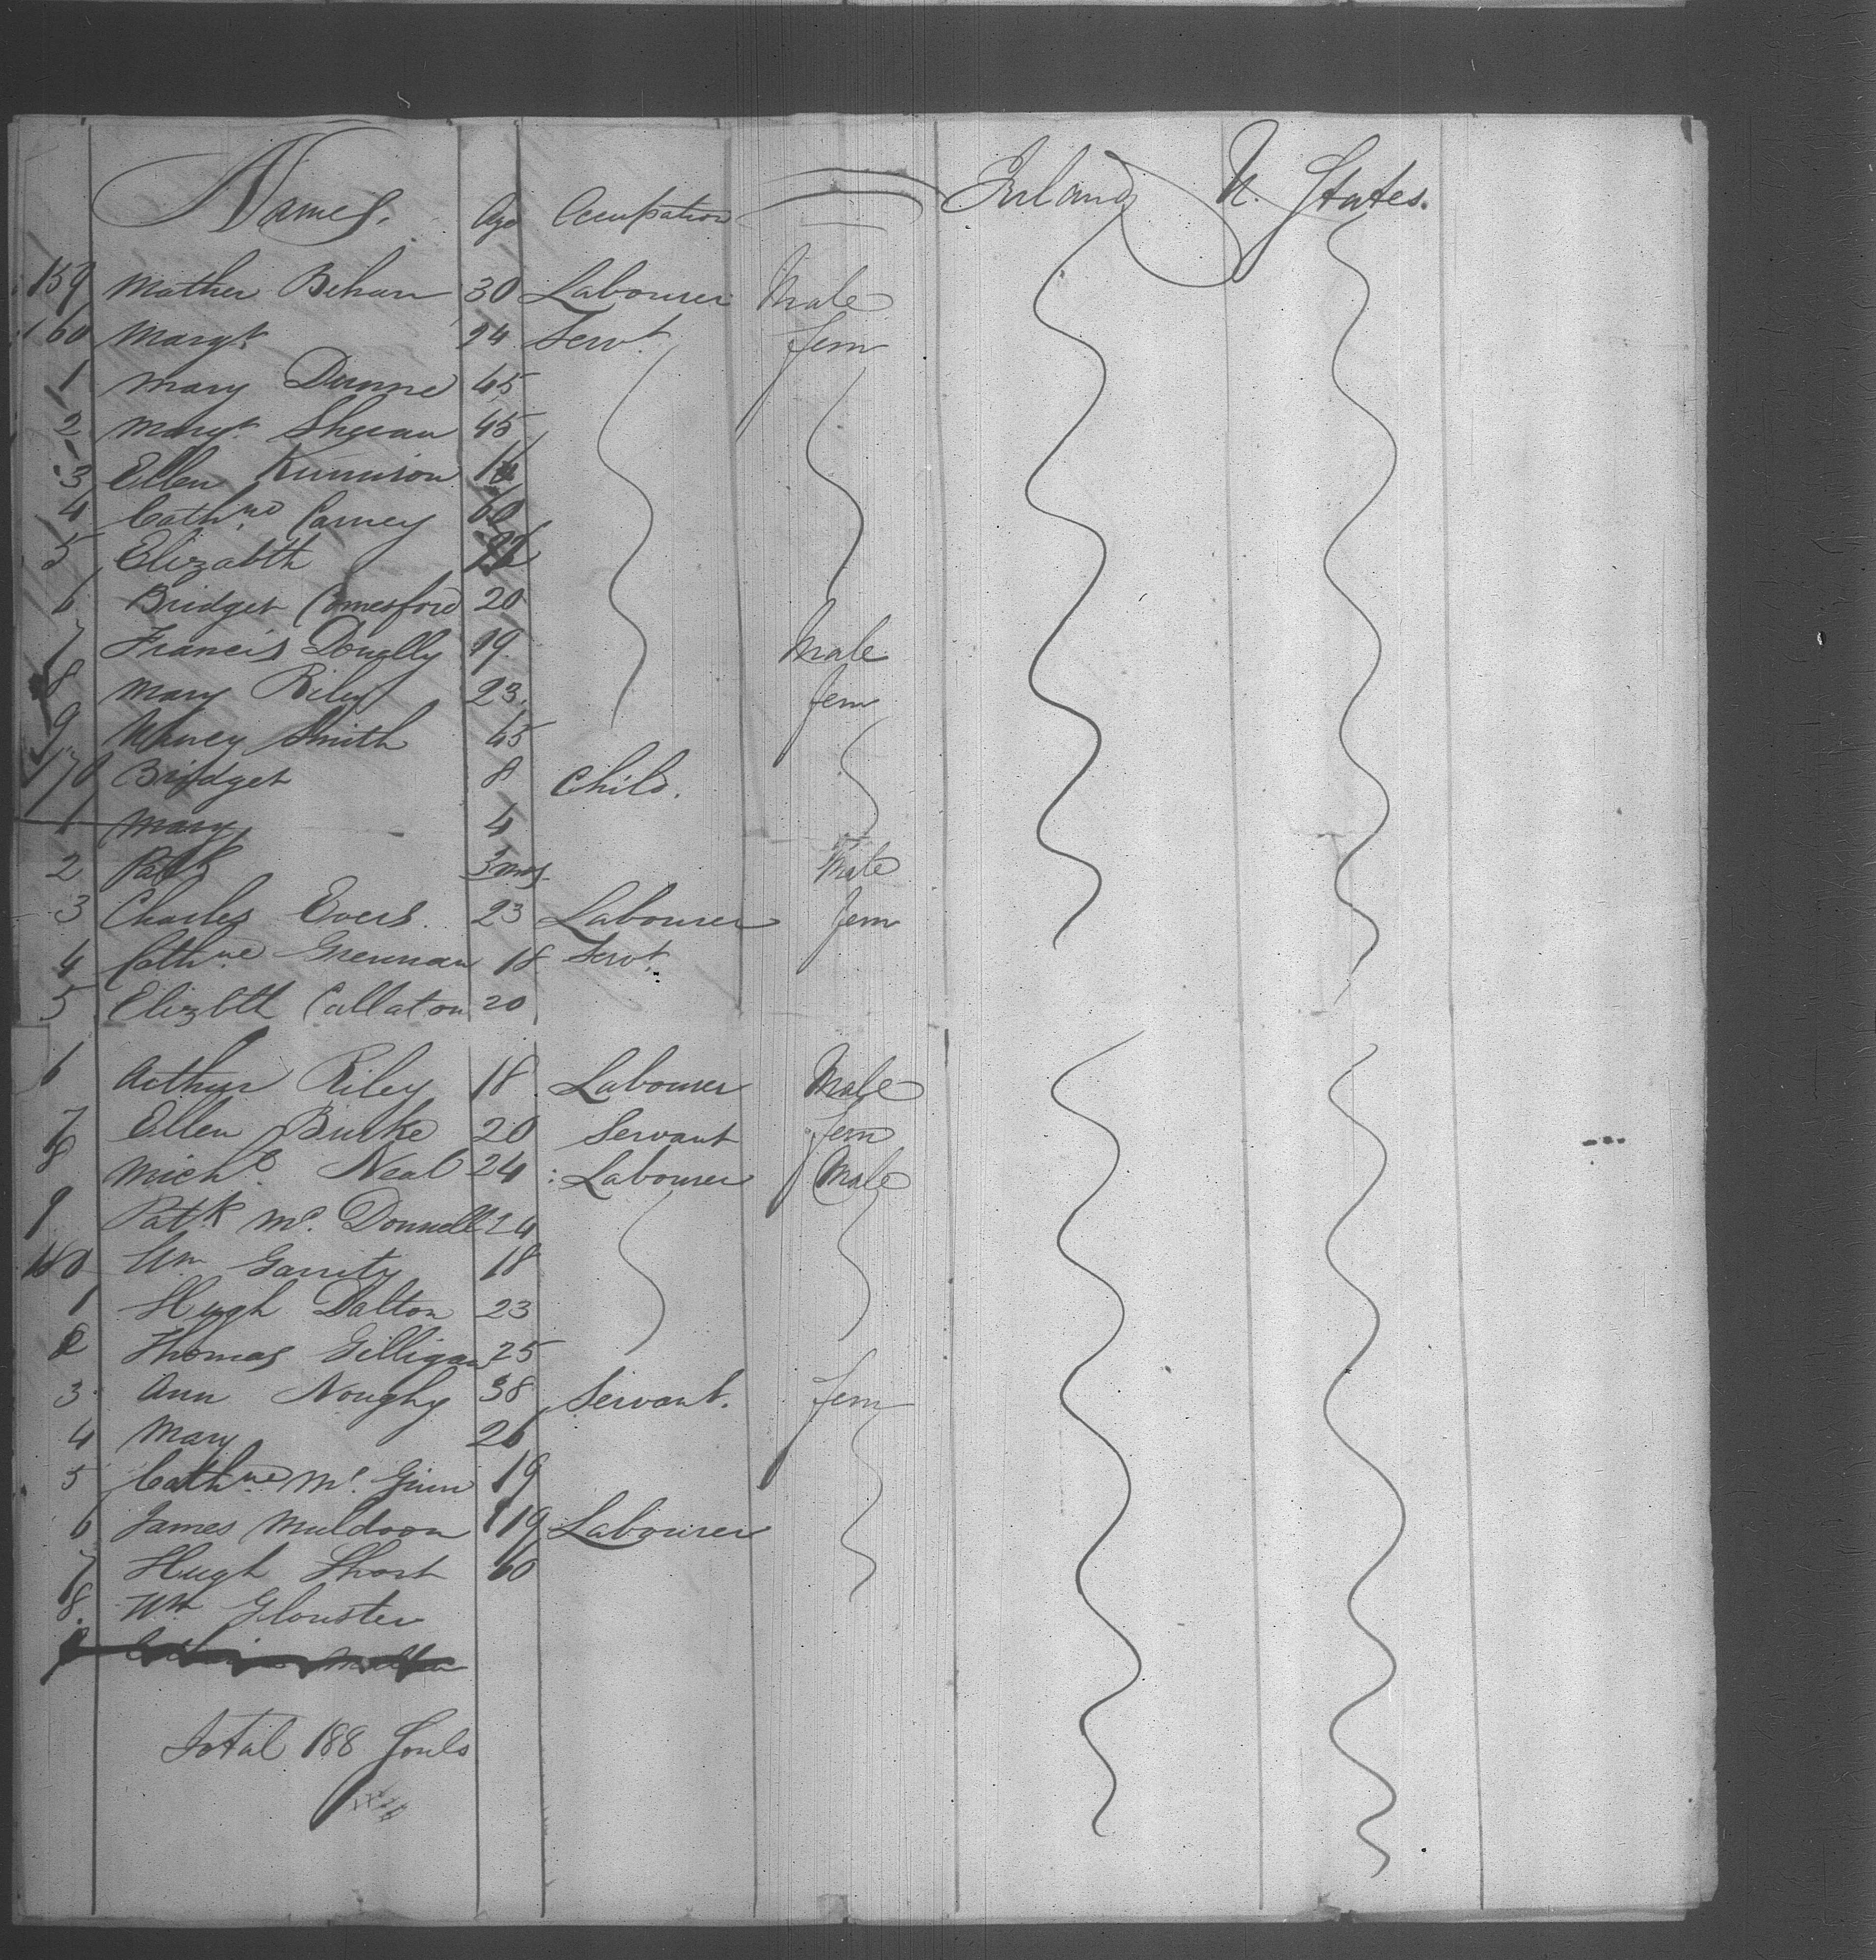 Names. Age Occupation Ireland U. States.
159 Mather Behan 30 Labourer Male
160 Margt 24 Servt Fem
1 Mary Dunne 45
2 Margt Sheean 45
3 Ellen Kinnison
4 Cathne Carney 60
5 Elizabth
6 Bridget Comesford 20
7 Francis Donelly 19 Male
8 Mary Riley 23 Fem
9 Nancy Smith 45
170 Bridget 8 Child.
1 Mary 4
2 Patk 3 mos Male
3 Charles Evers. 23 Labourer Fem
4 Cathne Grennan 18 Servt
5 Elizbth Callaton 20
6 Arthur Riley 18 Labourer Male
7 Ellen Burke 20 Servant Fem
8 Michl Neal 24 Labourer Male
9 Patk Mc Donnell 24
180 Wm Garrity 18
1 Hugh Dalton 23
2 Thomas Gilligan 25
3 Ann Noughy 38 Servant. Fem
4 Mary 26
5 Cathne Mc Ginn 19
6 James Muldoon 19 Labourer
7 Hugh Short 60
8. Wm Glouster
Total 188 Souls